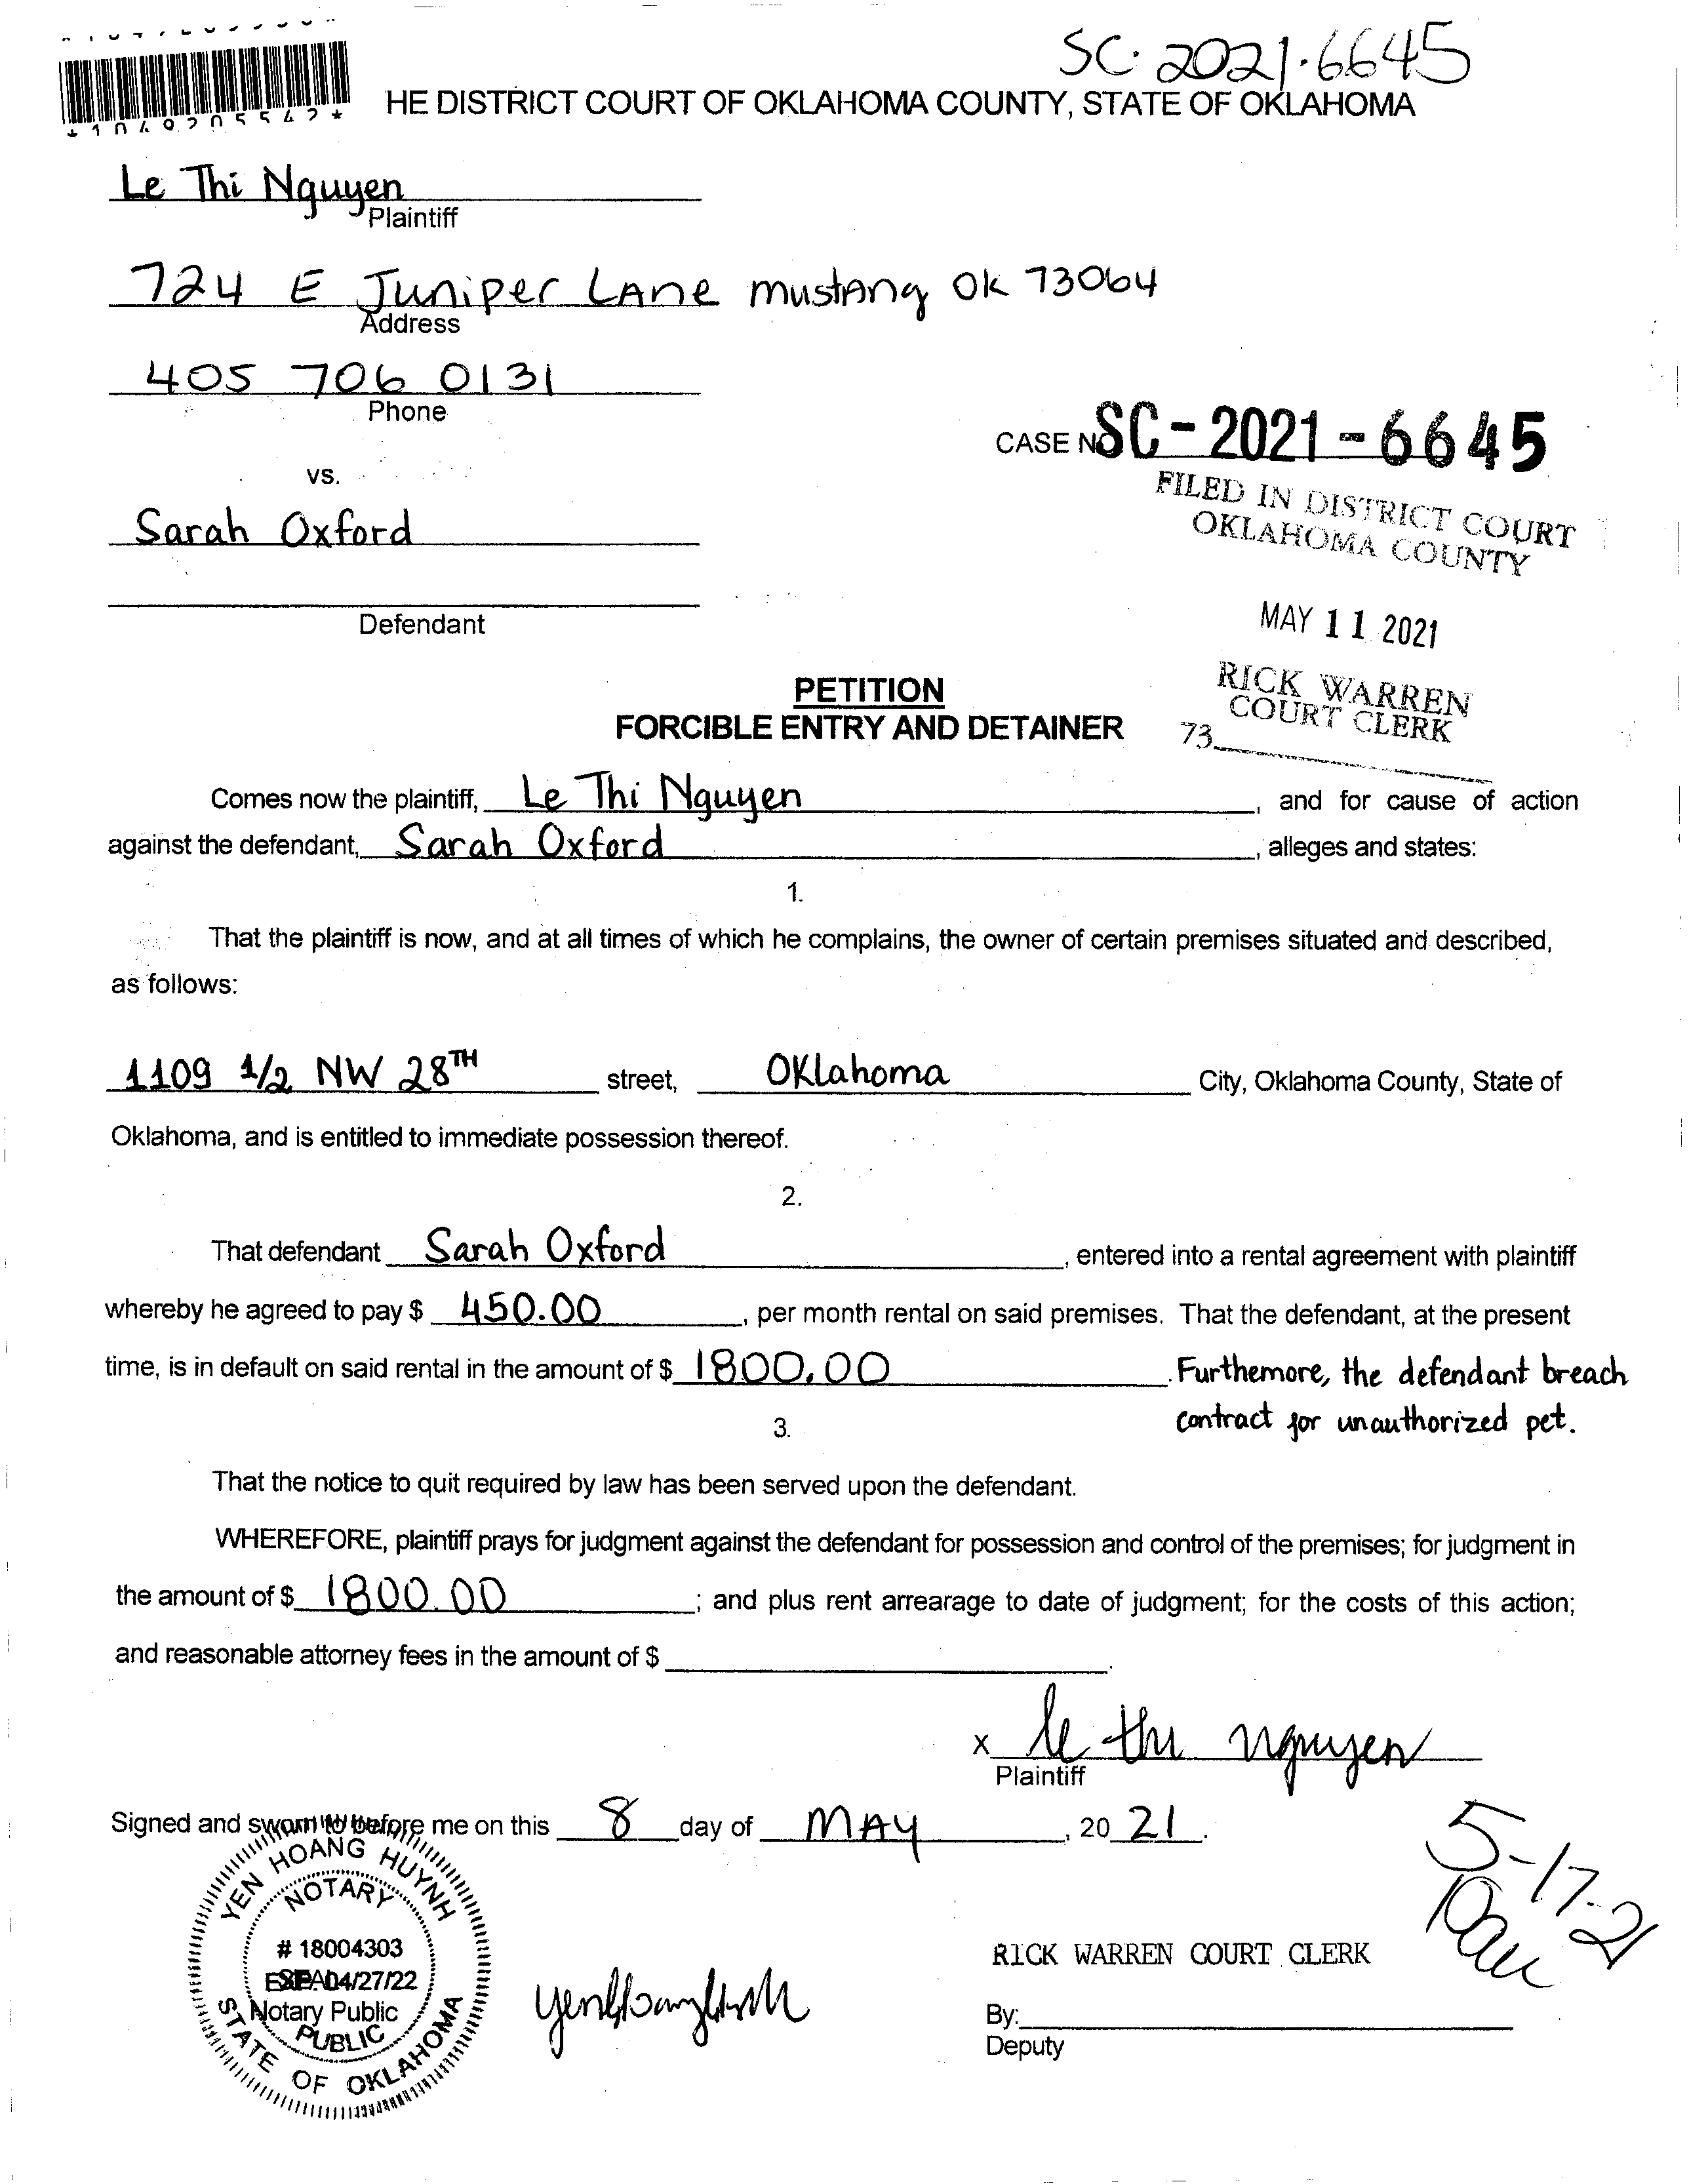 SC-2021-6645
*1049205542*
HE DISTRICT COURT OF OKLAHOMA COUNTY, STATE OF OKLAHOMA
Le Thi Nguyen
Plaintiff
724 E Juniper LAne mustAng Ok 73064
Address
405 706 0131
Phone
CASE NO SC-2021-6645
vs.
FILED IN DISTRICT COURT
OKLAHOMA COUNTY
Sarah Oxford
Defendant
MAY 11 2021
RICK WARREN
COURT CLERK
73
PETITION
FORCIBLE ENTRY AND DETAINER
Comes now the plaintiff, Le Thi Nguyen, and for cause of action
against the defendant, Sarah Oxford, alleges and states:
1.
That the plaintiff is now, and at all times of which he complains, the owner of certain premises situated and described,
as follows:
1109 1/2 NW 28TH street, OKlahoma City, Oklahoma County, State of
Oklahoma, and is entitled to immediate possession thereof.
2.
That defendant Sarah Oxford, entered into a rental agreement with plaintiff
whereby he agreed to pay $ 450.00, per month rental on said premises. That the defendant, at the present
time, is in default on said rental in the amount of $ 1800.00. Furthemore, the defendant breach
contract for unauthorized pet.
3.
That the notice to quit required by law has been served upon the defendant.
WHEREFORE, plaintiff prays for judgment against the defendant for possession and control of the premises; for judgment in
the amount of $ 1800.00; and plus rent arrearage to date of judgment; for the costs of this action;
and reasonable attorney fees in the amount of $
x le thi nguyen
Plaintiff
Signed and sworn to before me on this 8 day of MAY, 20 21.
5-17-21
YEN HOANG HUYNH
NOTARY
# 18004303
SEAL
EXP. 04/27/22
Notary Public
PUBLIC
STATE OF OKLAHOMA
RICK WARREN COURT CLERK
By:
Deputy